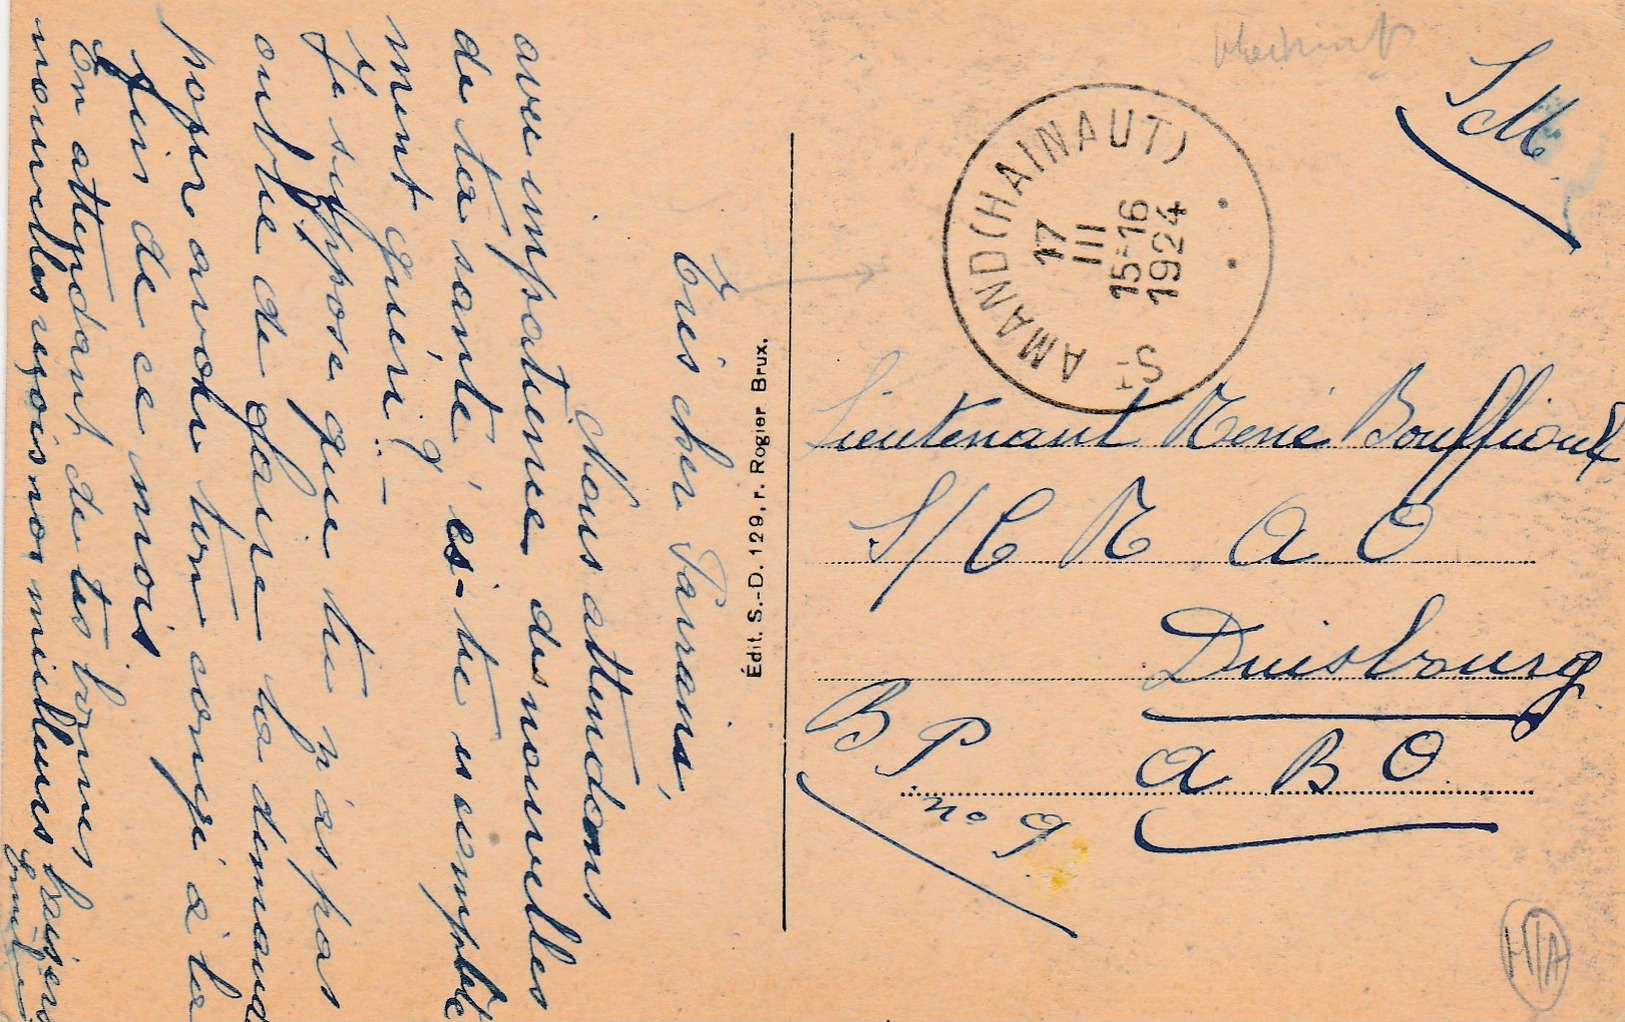 Très cher Parrain,
Nous attendons
avec impatience des nouvelles
de ta santé, es-tu complète
ment guéri ? –
Je suppose que tu n'as pas
oublié de faire ta demande
pour avoir ton congé à la
fin de ce mois
En attendant de tes bonnes
nouvelles reçois nos meilleurs baisers
Édit. S.-D. 129, r. Rogier Brux.
S M
ST AMAND (HAINAUT)
17
III
15-16
1924
Lieutenant René Bouffioux
S/C R A O
Duisburg
A B O
B P
no 9